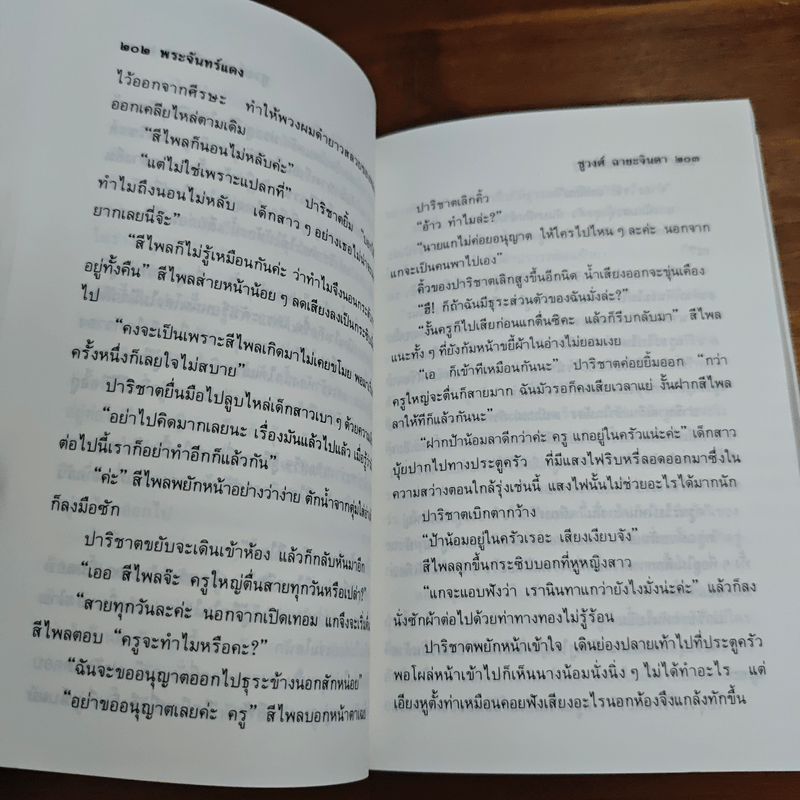 ๒๐๒ พระจันทร์แดง
ไว้ออกจากศีรษะ ทำให้พวงผมดำยาวสลวย
ออกเคลียไหล่ตามเดิม
“สีไพลก็นอนไม่หลับค่ะ”
“แต่ไม่ใช่เพราะแปลกที่” ปาริชาตยิ้ม
ทำไมถึงนอนไม่หลับ เด็กสาว ๆ อย่างเธอไม่น่า
ยากเลยนี่จ๊ะ”
“สีไพลก็ไม่รู้เหมือนกันค่ะ ว่าทำไมจึงนอน
อยู่ทั้งคืน” สีไพลส่ายหน้าน้อย ๆ ลดเสียงลงเป็น
ไป
“คงจะเป็นเพราะสีไพลเกิดมาไม่เคยขโมย
ครั้งหนึ่งก็เลยใจไม่สบาย”
ปาริชาตยื่นมือไปลูบไหล่เด็กสาวเบา ๆ ด้วย
“อย่าไปคิดมากเลยนะ เรื่องมันแล้วไปแล้ว เมื่อรู้
ต่อไปนี้เราก็อย่าทำอีกก็แล้วกัน”
“ค่ะ” สีไพลพยักหน้าอย่างว่าง่าย ตักน้ำจากตุ่มใส่
ก็ลงมือซัก
ปาริชาตขยับจะเดินเข้าห้อง แล้วก็กลับหันมาอีก
“เออ สีไพลจ๊ะ ครูใหญ่ตื่นสายทุกวันหรือเปล่า?”
“สายทุกวันละค่ะ นอกจากเปิดเทอม แกจึงจะ
สีไพลตอบ “ครูจะทำไมหรือคะ?”
“ฉันจะขออนุญาตออกไปธุระข้างนอกสักหน่อย”
“อย่าขออนุญาตเลยค่ะ ครู” สีไพลบอกหน้าตา
ชูวงศ์ ฉายะจินดา ๒๐๓
ปาริชาตเลิกคิ้ว
“อ้าว ทำไมล่ะ?”
“นายแกไม่ค่อยอนุญาต ให้ใครไปไหน ๆ ละค่ะ นอกจาก
แกจะเป็นคนพาไปเอง”
คิ้วของปาริชาตเลิกสูงขึ้นอีกนิด น้ำเสียงออกจะขุ่นเคือง
“ฮึ! ก็ถ้าฉันมีธุระส่วนตัวของฉันมั่งล่ะ?”
“งั้นครูก็ไปเสียก่อนแกตื่นซิคะ แล้วก็รีบกลับมา” สีไพล
แนะทั้ง ๆ ที่ยังก้มหน้าขยี้ผ้าในอ่างไม่ยอมเงย
“เอ ก็เข้าทีเหมือนกันนะ” ปาริชาตค่อยยิ้มออก “กว่า
ครูใหญ่จะตื่นก็สายมาก ฉันมัวรอก็คงเสียเวลาแย่ งั้นฝากสีไพล
ลาให้ทีก็แล้วกันนะ”
“ฝากป้าน้อมลาดีกว่าค่ะ ครู แกอยู่ในครัวแน่ะค่ะ” เด็กสาว
บุ้ยปากไปทางประตูครัว ที่มีแสงไฟริบหรี่ลอดออกมาซึ่งใน
ความสว่างตอนใกล้รุ่งเช่นนี้ แสงไฟนั้นไม่ช่วยอะไรได้มากนัก
ปาริชาตเบิกตากว้าง
“ป้าน้อมอยู่ในครัวเรอะ เสียงเงียบจัง”
สีไพลลุกขึ้นกระซิบบอกที่หูหญิงสาว
“แกจะแอบฟังว่า เรานินทาแกว่ายังไงมั่งน่ะค่ะ” แล้วก็ลง
นั่งซักผ้าต่อไปด้วยท่าทางทองไม่รู้ร้อน
ปาริชาตพยักหน้าเข้าใจ เดินย่องปลายเท้าไปที่ประตูครัว
พอโผล่หน้าเข้าไปก็เห็นนางน้อมนั่งนิ่ง ๆ ไม่ได้ทำอะไร แต่
เอียงหูตั้งท่าเหมือนคอยฟังเสียงอะไรนอกห้องจึงแกล้งทักขึ้น